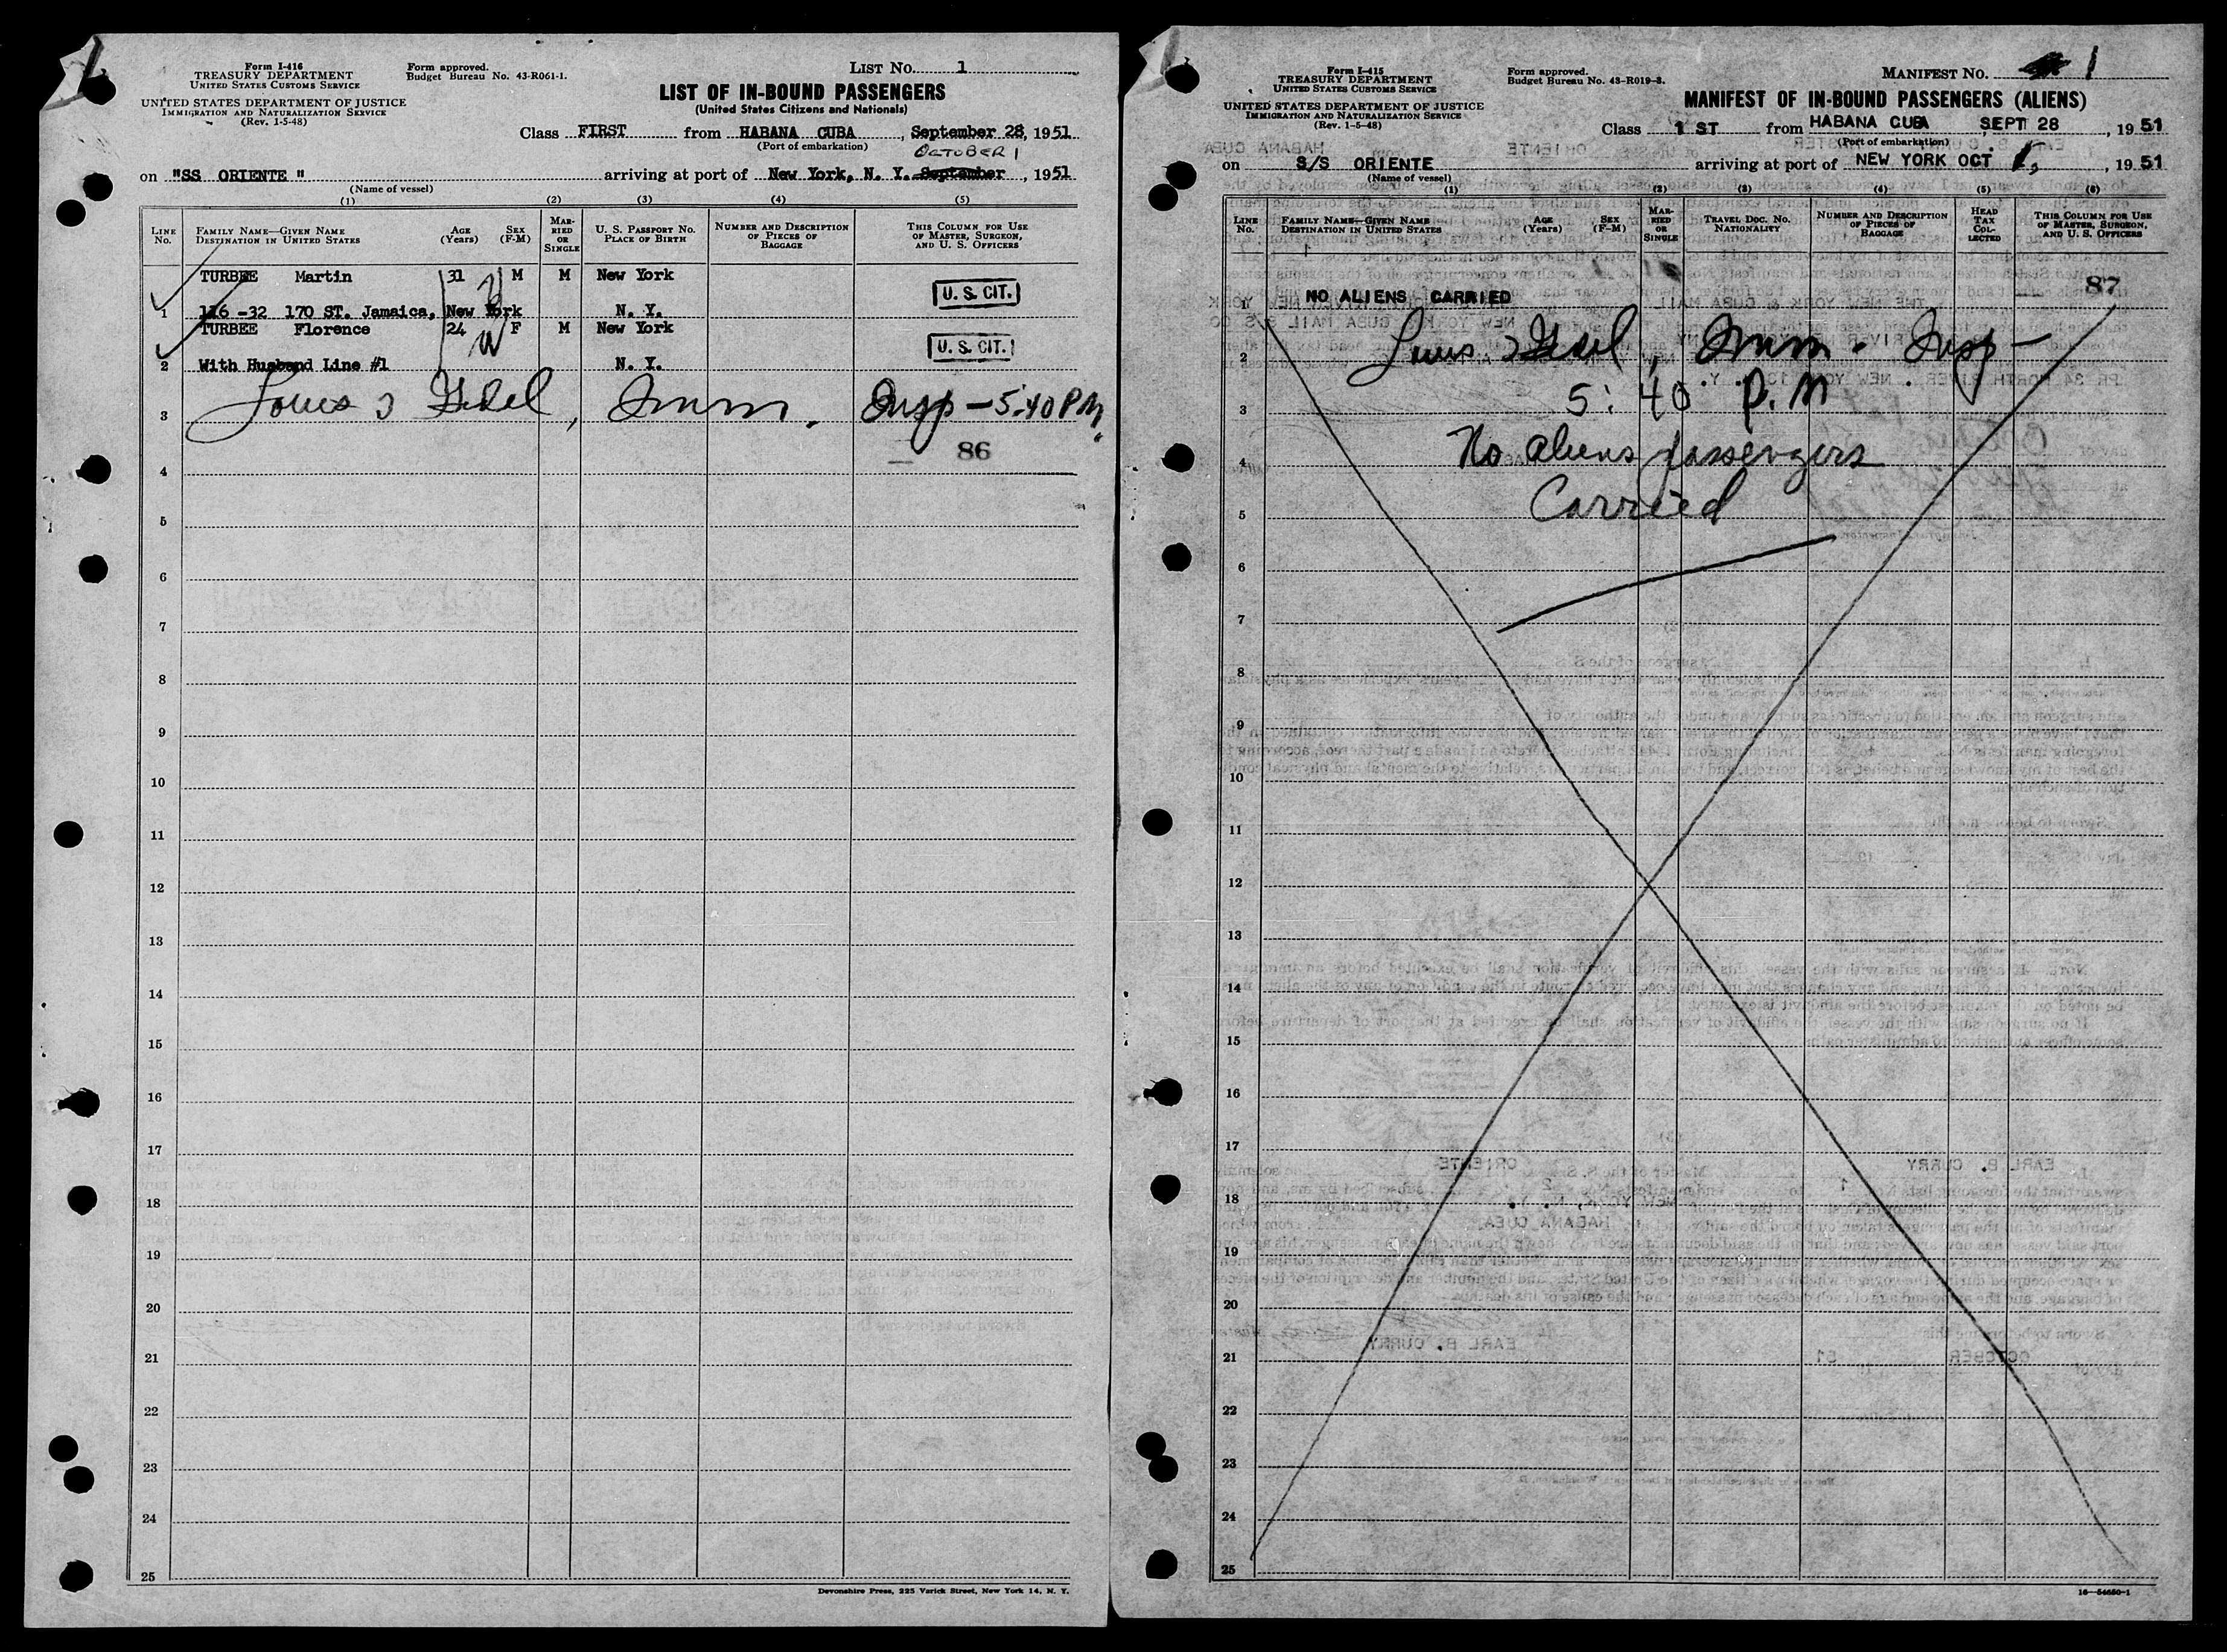 Form I-416
TREASURY DEPARTMENT
UNITED STATES CUSTOMS SERVICE
UNITED STATES DEPARTMENT OF JUSTICE
IMMIGRATION AND NATURALIZATION SERVICE
(Rev. 1-5-48)
Form approved.
Budget Bureau No. 43-R061-1.
LIST No. 1
LIST OF IN-BOUND PASSENGERS
(United States Citizens and Nationals)
Class FIRST from HABANA CUBA, September 28, 1951
(Port of embarkation)
OCTOBER 1
on "SS ORIENTE" arriving at port of New York, N. Y. September, 1951
(Name of vessel)
(1) (2) (3) (4) (5)
LINE No. FAMILY NAME—GIVEN NAME DESTINATION IN UNITED STATES AGE (Years) SEX (F-M) MARRIED OR SINGLE U. S. PASSPORT No. PLACE OF BIRTH NUMBER AND DESCRIPTION OF PIECES OF BAGGAGE THIS COLUMN FOR USE OF MASTER, SURGEON, AND U. S. OFFICERS
TURBEE Martin 31 M M New York
U. S. CIT.
1 116-32 170 ST. Jamaica, New York N. Y.
TURBEE Florence 24 F M New York
U. S. CIT.
2 With Husband Line #1 N. Y.
3 Louis Imm. Insp - 5:40 PM
86
4
5
6
7
8
9
10
11
12
13
14
15
16
17
18
19
20
21
22
23
24
25
Devonshire Press, 225 Varick Street, New York 14, N. Y.
Form I-415
TREASURY DEPARTMENT
UNITED STATES CUSTOMS SERVICE
UNITED STATES DEPARTMENT OF JUSTICE
IMMIGRATION AND NATURALIZATION SERVICE
(Rev. 1-5-48)
Form approved.
Budget Bureau No. 43-R019-3.
MANIFEST No. 1
MANIFEST OF IN-BOUND PASSENGERS (ALIENS)
Class 1 ST from HABANA CUBA SEPT 28, 1951
(Port of embarkation)
on S/S ORIENTE arriving at port of NEW YORK OCT 1, 1951
(Name of vessel)
(1) (2) (3) (4) (5) (6)
LINE No. FAMILY NAME—GIVEN NAME DESTINATION IN UNITED STATES AGE (Years) SEX (F-M) MARRIED OR SINGLE TRAVEL DOC. No. NATIONALITY NUMBER AND DESCRIPTION OF PIECES OF BAGGAGE HEAD TAX COLLECTED THIS COLUMN FOR USE OF MASTER, SURGEON, AND U. S. OFFICERS
87
1 NO ALIENS CARRIED
2 Louis Imm. Insp -
3 5:40 P.M
4 No aliens passengers
5 Carried
6
7
8
9
10
11
12
13
14
15
16
17
18
19
20
21
22
23
24
25
16—54650-1